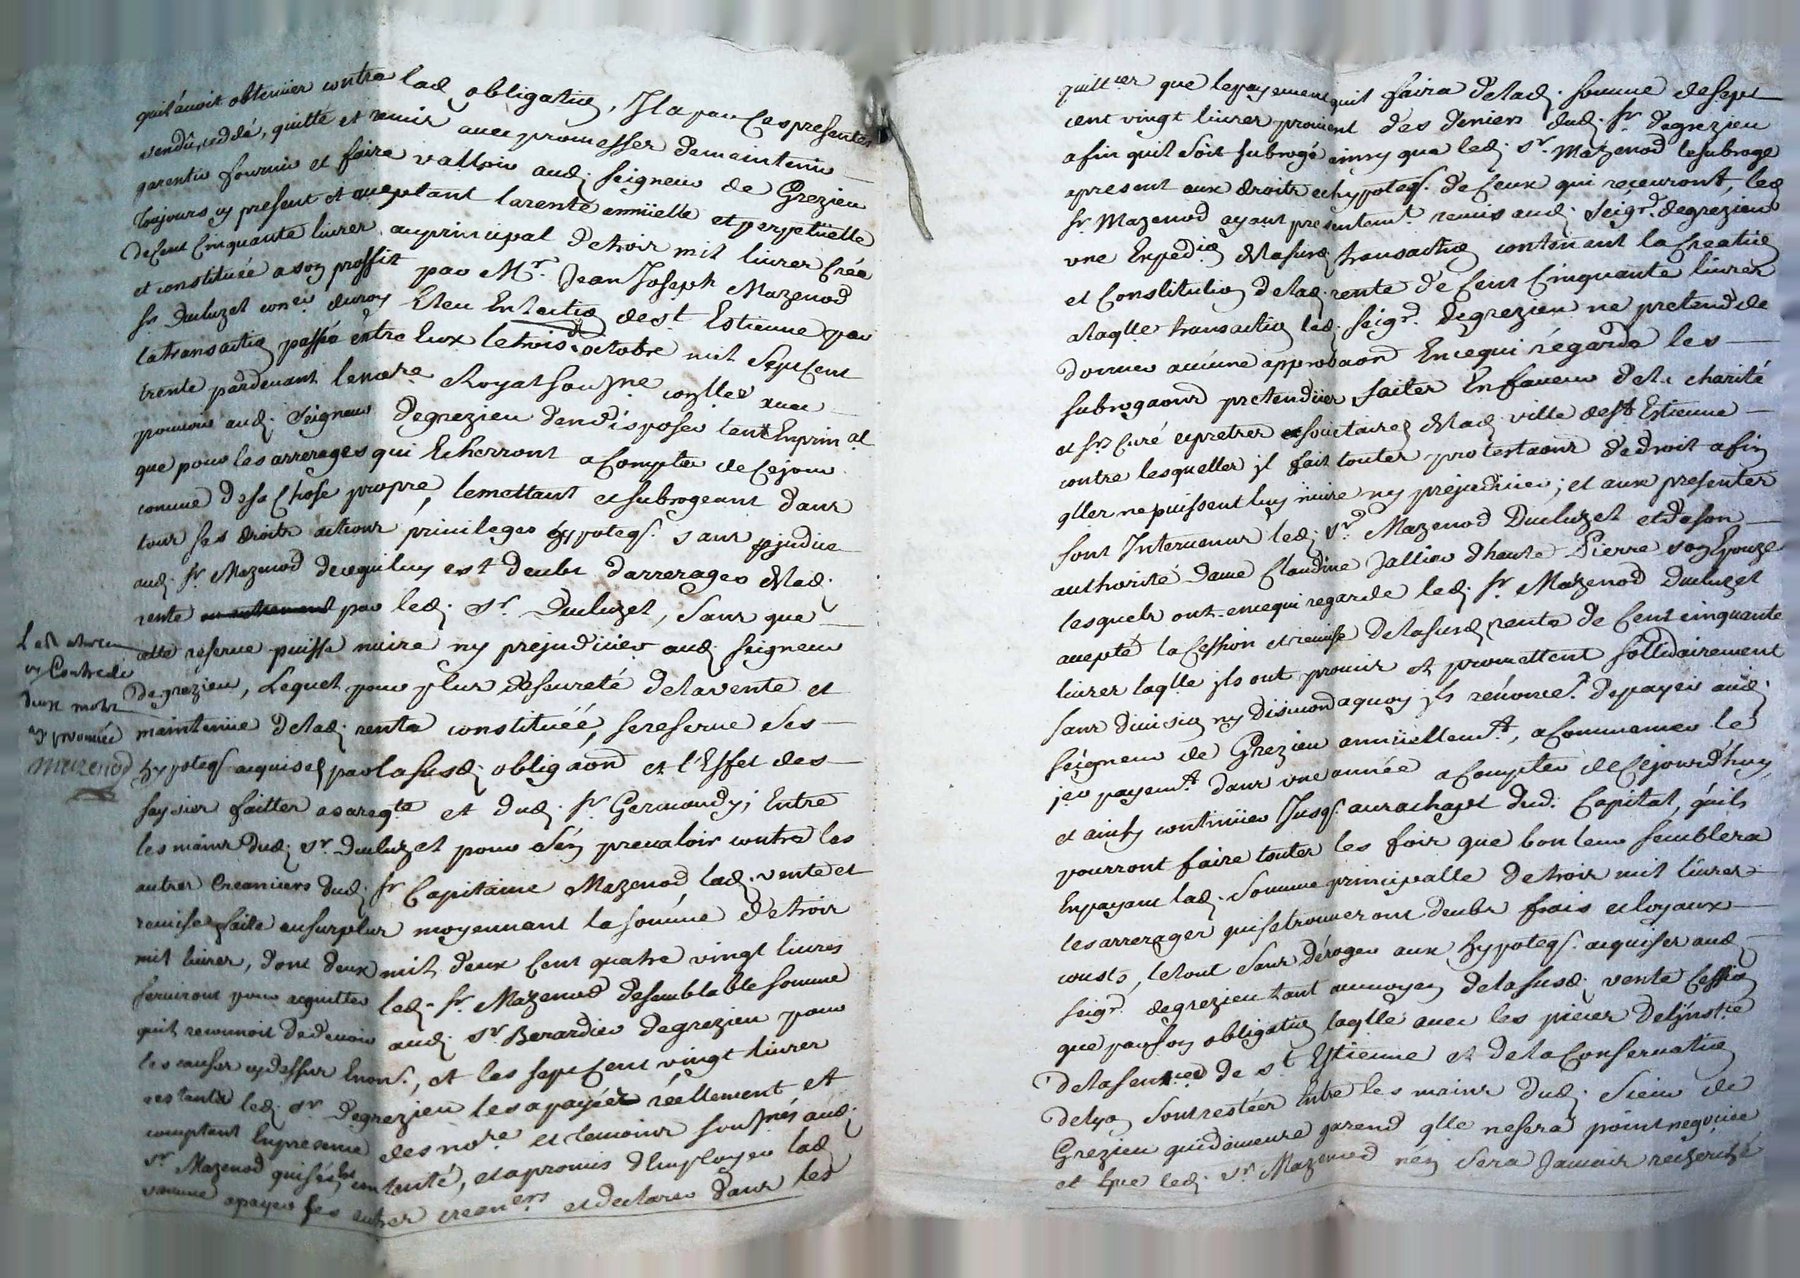 quil avoit obtenües contre lad obligation, Il a par ces presentes
vendû, ceddé, quitté et remis avec promesses de maintenir
garentir fournir et faire valloir aud. seigneur de Grezieu
toujours cy present et acceptant la rente annüelle et perpetüelle
de Cent Cinquante livres, au principal de trois mil livres Créé
et constituée a son proffit par Mr. Jean Joseph Mazenod
sr Duluzet coner. du roy Eleu En lection de st. Estienne par
la transaction passée entre Eux le trois octobre mil sept Cent
trente pardevant le nore. Royal sousne
pouvoir aud. seigneur degrezieu d'en disposer tant En prinal
que pour les arrerages qui Echerront a Compter de Cejour
comme de sa Chose propre, le mettant et subrogeant dans
tous ses droits actions privileges hypoteqs. sans pjudice
aud. sr Mazenod de cequi luy est deubt d'arrerages de lad.
rente ou autrement par led. sr. Duluzet, sans que
cette reserve puisse nuire ny prejudicier aud. seigneur
degrezieu, Lequel pour plus de seureté de la vente et
maintenüe de lad. rente constituéé, se reserve ses
hypoteqs acquises par la susd. obligaõn et l'Effet des
saysies faittes a sa reqte et dud. sr Germaudy; Entre
les mains dud. sr. Duluzet pour s'en prevaloir contre les
autres Creanciers dud. sr Capitaine Mazenod lad. vente et
remise faite au surplus moyennant la somme de trois
mil livres, dont deux mil deux Cent quatre vingt livres
serviront pour acquitter led. sr. Mazenod de semblable somme
quil reconnoit de devoir aud. sr Berardier degrezieu pour
les causes cy dessus Enons., et les sept Cent vingt livres
restantes led. sr. Degrezieu les a payéés réellement et
comptant En presence des nore et temoins sousnés aud.
sr. Mazenod qui s'est contenté, et a promis d'Employer lad
somme a payer ses autres creaners et declarer dans les
Mazenod
quittces que le payement quil faira de lad. somme de sept
cent vingt livres provient des deniers dud. sr. degrezieu
afin quil soit subrogé ainsy que led. sr. Mazenod le subroge
apresent aux droits et hypoteqs. de Ceux qui recevront, led
sr. Mazenod ayant presentemt. remis aud. seigr. degrezieu
une Expedion de la susd transaction contenant la Creation
et Constitution de lad. rente de Cent Cinquante livres
a laqlle transaction led. seigr. degrezieu ne pretend de
donner aucune approbaõn En ce qui regarde les
subrogaõns pretendües faites En faveur de la charité
et srs Curé et pretres societaires de lad ville de st Estienne
contre lesquelles jl fait toutes protestaõns de droit afin
qlles ne puissent luy nuire ny prejudicier; et aux presentes
sont Intervenus led. sr. Mazenod Duluzet et de son
authorité Dame Claudine Jallier d'haute Pierre son Epouze
lesquels ont en ce qui regarde led. sr. Mazenod Duluzet
accepté la Cession et remise de la susd rente de Cent cinquante
livres laqlle jls ont promis et promettent sollidairement
sans division ny discution a quoy jls rénonct. de payer aud.
seigneur de Grezieu annüellemt., a Commencer le
1er payemt. dans une année a Compter de Cejourd'huy,
et ainsy continüer Jusqs. au rachapt dud. Capital, quils
pourront faire toutes les fois que bon leur semblera
En payant lad. somme principalle de trois mil livres
les arrerages qui se trouveront deubs frais et loyaux
cousts, letout sans déroger aux hypoteqs. acquises aud
seigr. degrezieu tant au moyen de la susd. vente Cession
que par son obligation laqlle avec les pieces de l'jnstce
de la senecée de st Estienne et de la Conservation
de lyon sont restées Entre les mains dud. sieur de
Grezieu qui demeure garend qlle ne sera point negociée
et que led. sr. Mazenod n'en sera Jamais recherché